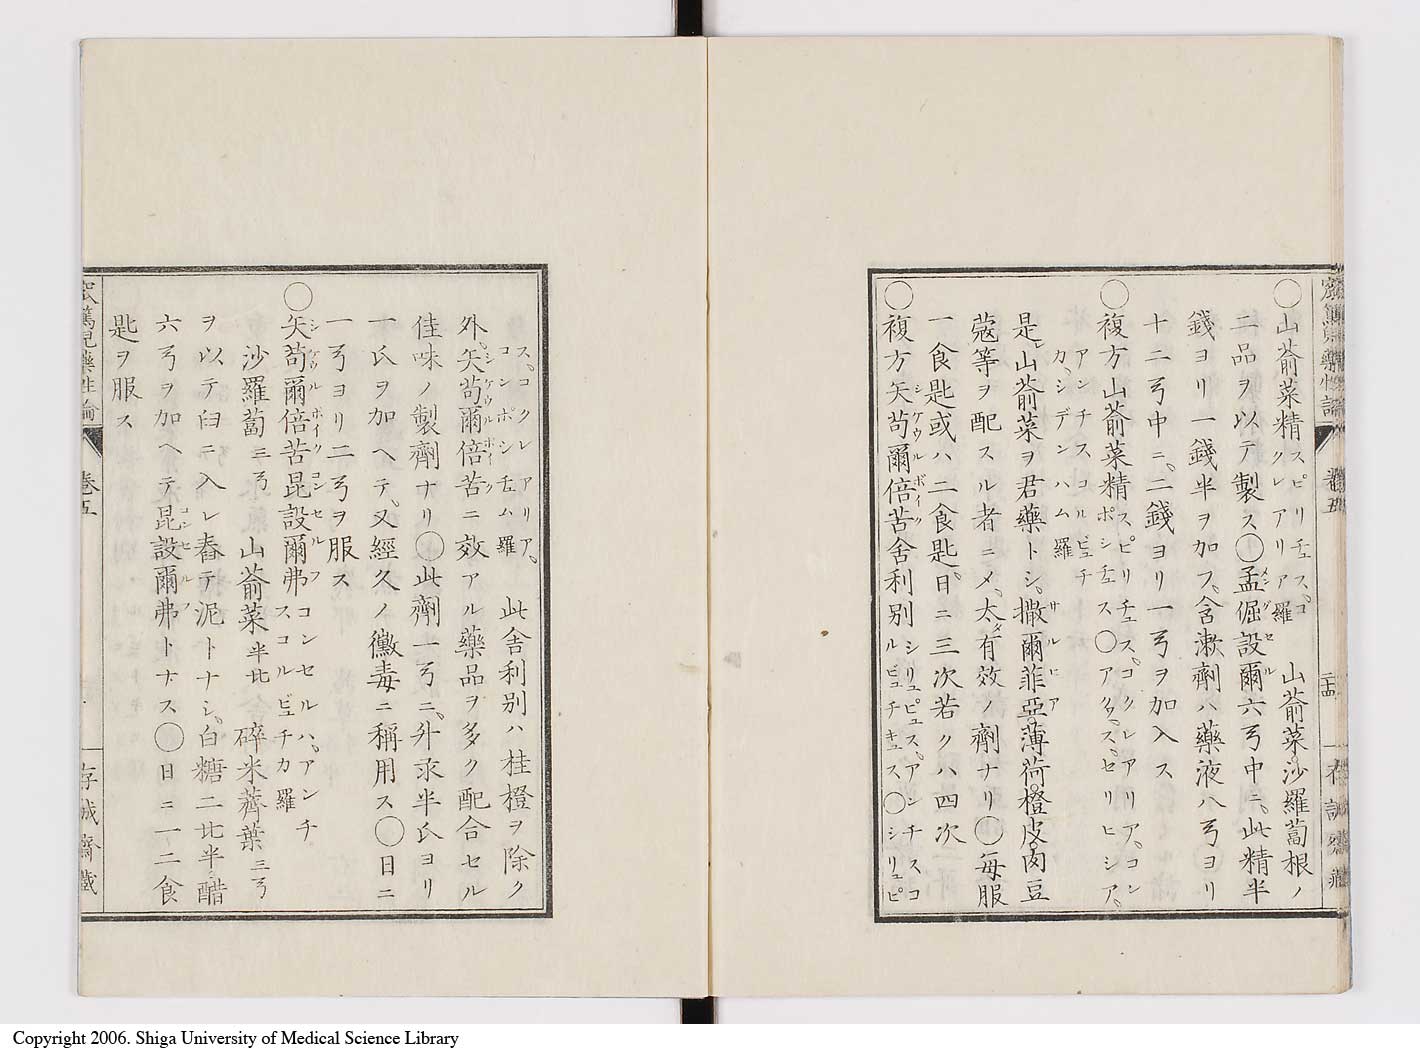 〇山葡菜精スピリチュス、コクレアリア羅 山葡菜沙羅蔔根ノ
二品ヲ以テ製ス〇孟倔設爾六弓中ニ、此精半
錢ヨリ一錢半ヲ加フ、含漱劑ハ藥液八弓ヨリ
十二弓中ニ、二錢ヨリ一弓ヲ加入ス
〇複方山葡菜精スピリチュス、コクレアリア、コンポシチュス〇アクア、スセリヒシア、
アンチスコルビュチカ、シデンハム羅
是、山葡菜ヲ君藥トシ、撒爾菲亞、薄荷、橙皮、肉豆
蔲等ヲ配スル者ニメ、太タ有效ノ劑ナリ〇毎服
一食匙或ハ二食匙、日ニ三次若クハ四次
〇複方矢苟爾倍苦舍利別シリュピュス、アンチスコルビュチキュス、〇シリュピ
ス、コクレアリア、コンポシチュム羅 此舍利別ハ桂橙ヲ除ク
外、矢苟爾倍苦ニ效アル藥品ヲ多ク配合セル
佳味ノ製劑ナリ〇此劑一弓ニ、升汞半氏ヨリ
一氏ヲ加ヘテ、又經久ノ黴毒ニ稱用ス〇日ニ
一弓ヨリ二弓ヲ服ス
〇矢苟爾倍苦昆設爾弗コンセルハ、アンチスコルビュチカ羅
沙羅蔔三弓 山葡菜半比 碎米薺葉三弓
ヲ以テ臼ニ入レ舂テ泥トナシ、白糖二比半醋
六弓ヲ加ヘテ昆設爾弗トナス〇日ニ一二食
匙ヲ服ス
卷五
存誠齋藏
Copyright 2006. Shiga University of Medical Science Library